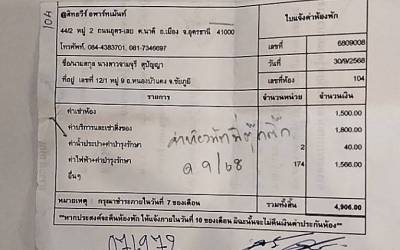 10A
@สิทธวีร์ อพาร์ทเม้นท์
ใบแจ้งค่าห้องพัก
44/2 หมู่ 2 ถนนอุดร-เลย ต.นาดี อ.เมือง จ.อุดรธานี 41000
โทรศัพท์. 084-4383701, 081-7346697
เลขที่ 6809008
ชื่อ/นามสกุล นางสาวจามจุรี
วันที่ 30/9/2568
ที่อยู่ เลขที่ 12/1 หมู่ 9 อ.หนองบัวแดง จ.ชัยภูมิ
เลขที่ห้อง 104
รายการ จำนวนหน่วย จำนวนเงิน
ค่าเช่าห้อง 1,500.00
ค่าบริการและเช่าสิ่งของ 1,800.00
ค่าน้ำประปา+ค่าบำรุงรักษา 2 40.00
ค่าไฟฟ้า+ค่าบำรุงรักษา 174 1,566.00
อื่นๆ
9/68
หมายเหตุ กรุณาชำระภายในวันที่ 7 ของเดือน รวมทั้งสิ้น 4,906.00
**หากประสงค์จะคืนห้องพัก ให้แจ้งภายในวันที่ 10 ของเดือน มิฉะนั้นจะไม่คืนเงินค่าประกันห้อง**